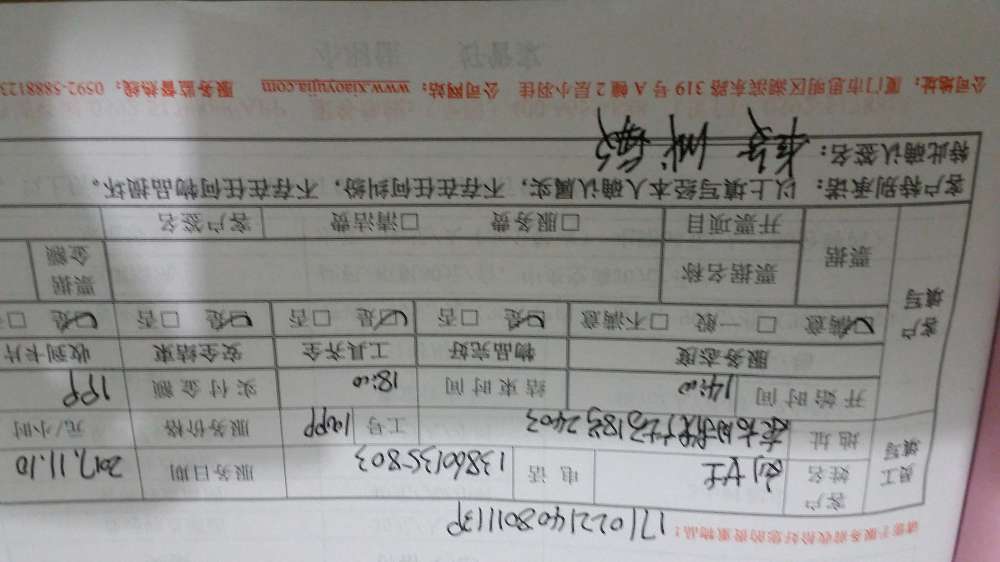 请您于服务前收拾好您的贵重物品: 171022140801113P
员工填写 客户姓名 刘女士 电话 13860135803 服务日期 2017.11.10
地址 2403 工号 服务价格 元/小时
开始时间 14:00 结束时间 18:00 实付金额
客户填写 服务态度 物品完好 工具齐全 安全结束 收到卡片
☑满意 □一般 □不满意 ☑是 □否 ☑是 □否 ☑是 □否 ☑是 □
票据 票据名称 票据金额
开票项目 □服务费 □清洁费 客户签名
客户特别承诺:以上填写经本人确认属实,不存在任何纠纷,不存在任何物品损坏。
特此确认签名:
公司地址:厦门市思明区湖滨东路319号A幢2层小羽佳 公司网站:www.xiaoyujia.com 服务监督热线:0592-5888123